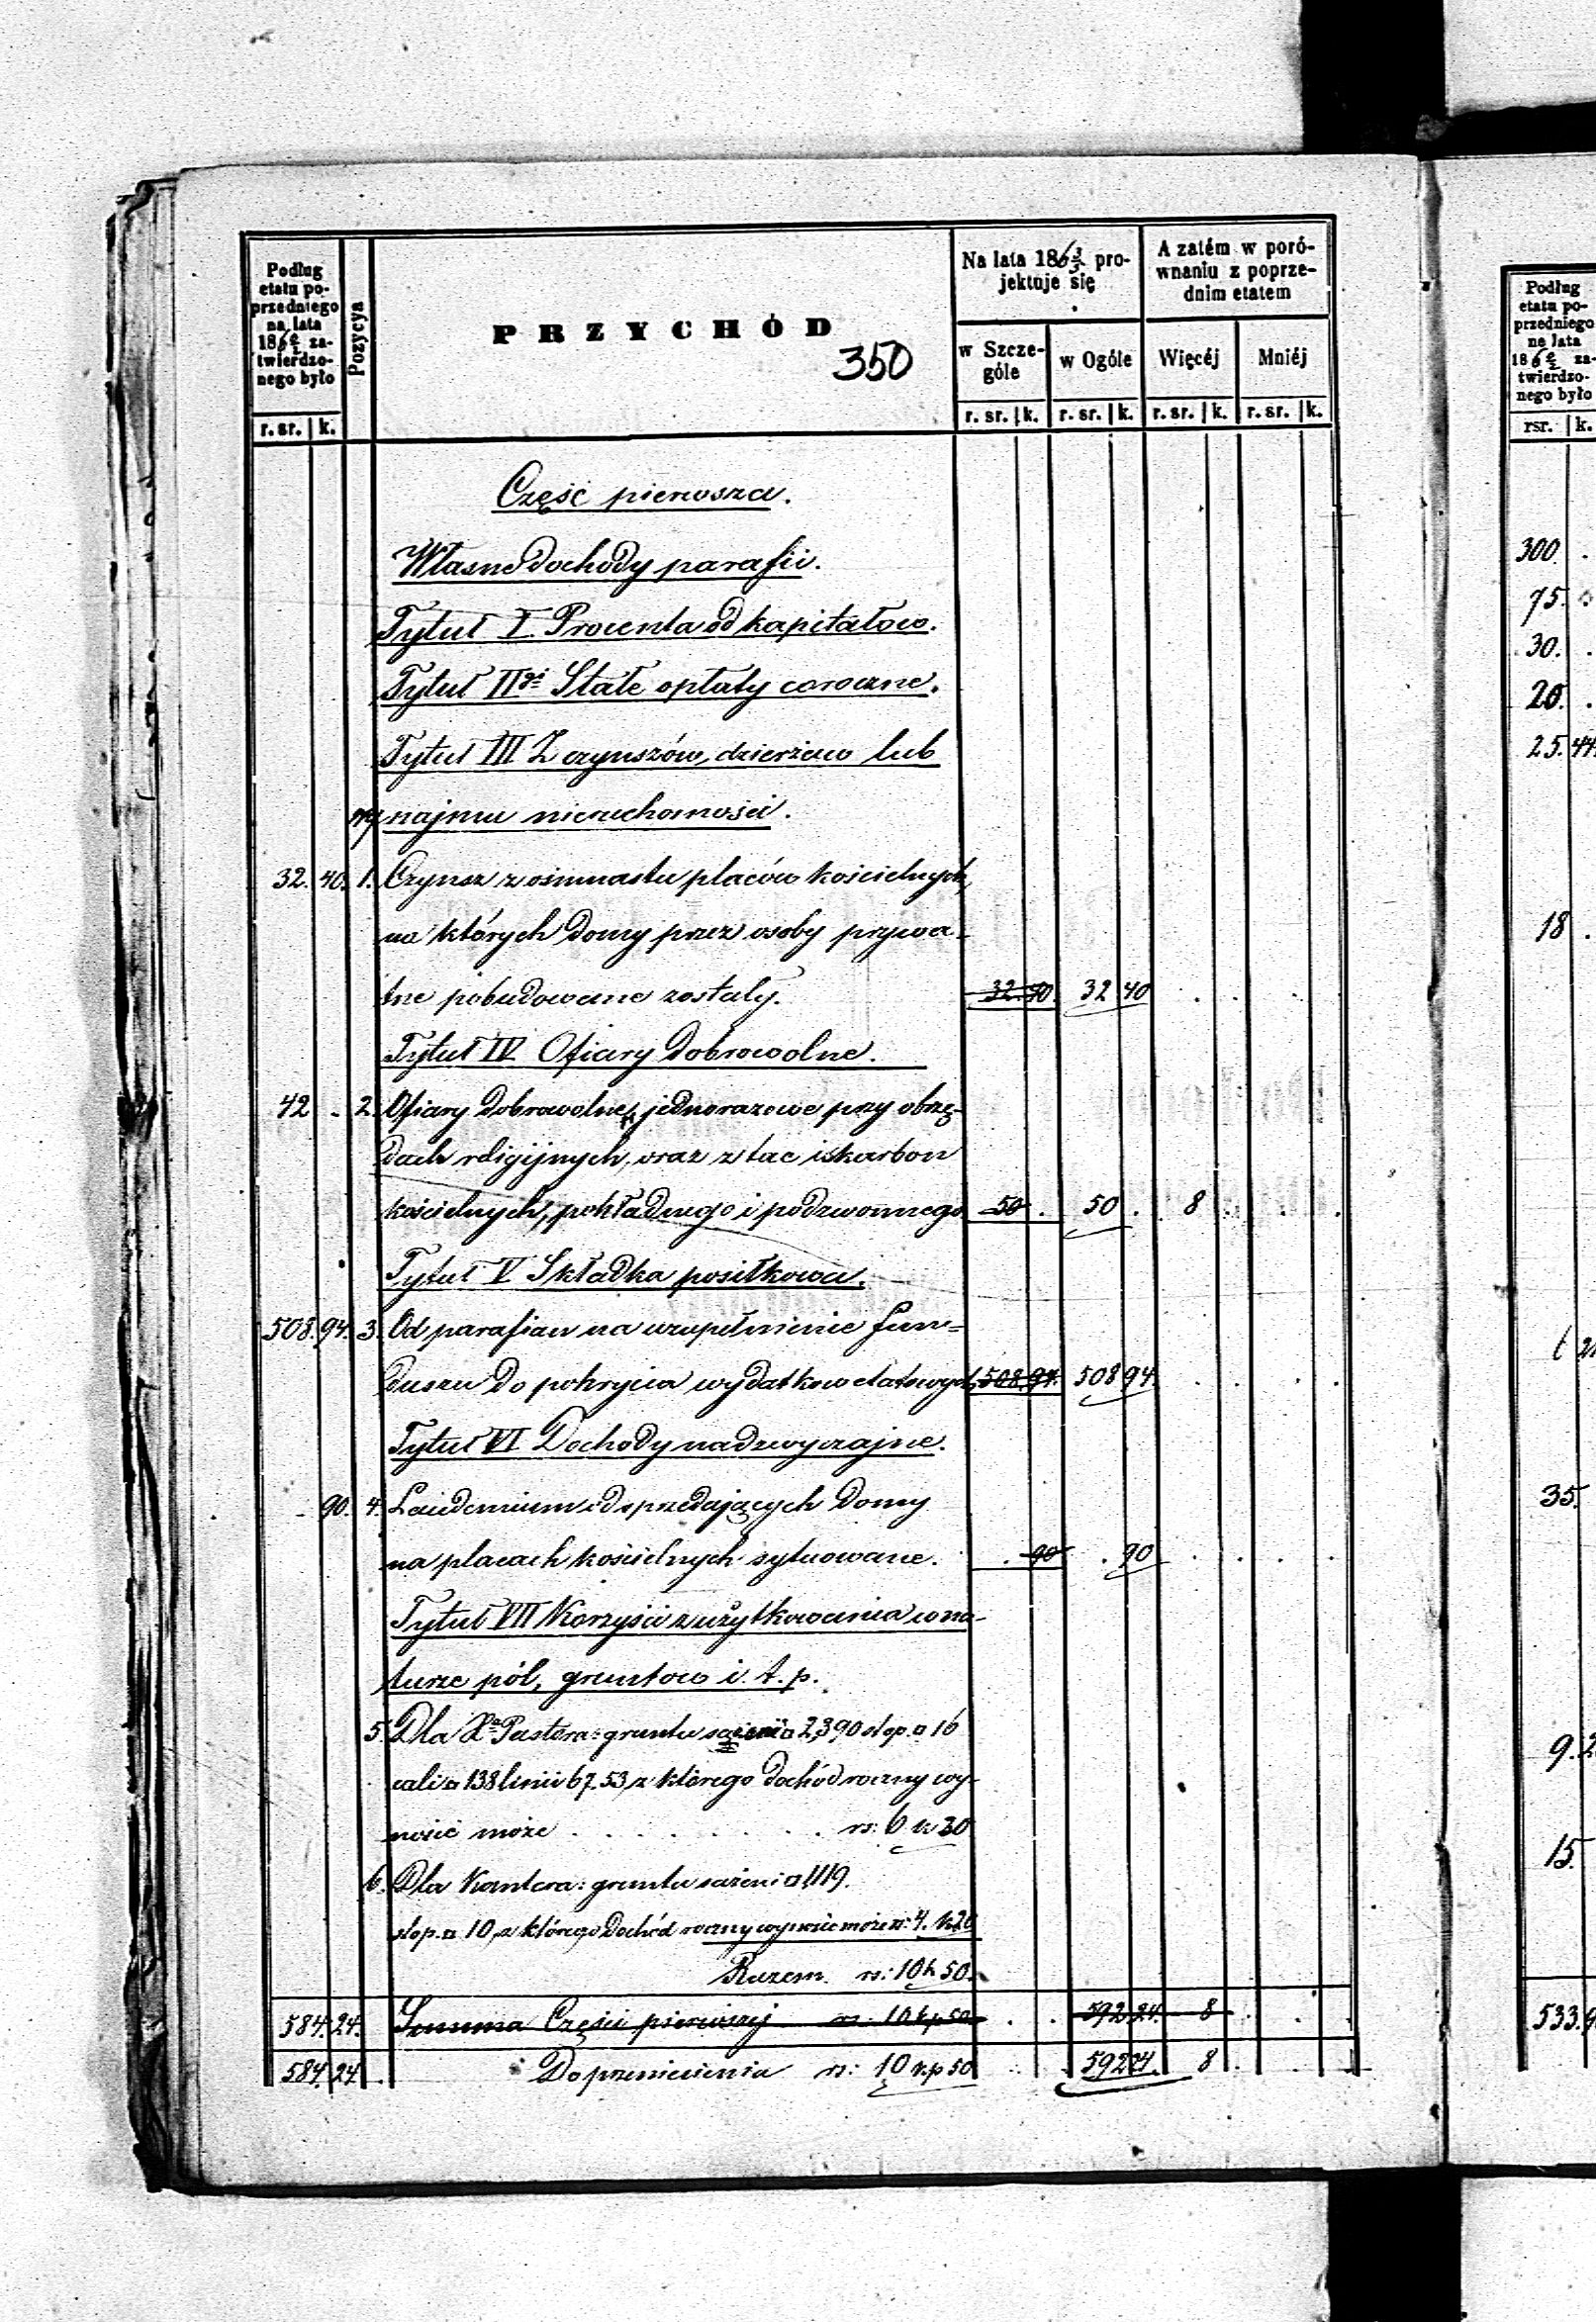 Podług
etatu po-
przedniego
na lata
186 za-
twierdzo-
nego było
r. sr. k.
Pozycya
PRZYCHÓD
350
Na lata 186 pro-
jektuje się
w Szcze-
góle
w Ogóle
r. sr. k. r. sr. k.
A zatém w poró-
wnaniu z poprze-
dnim etatem
Więcéj Mniéj
r. sr. k. r. sr. k.
Część pierwsza.
Własne dochody parafii.
Tytuł I. Procenta od kapitałów.
Tytuł II Stałe opłaty coroczne.
Tytuł III Z czynszów, dzierżaw lub
najmu nieruchomości.
32. 40. 1. Czynsz z ośmnastu placów kościelnych,
na których domy przez osoby prywa-
tne pobudowane zostały. 32. 40. 32 40
Tytuł IV Ofiary dobrowolne.
42 . 2. Ofiary dobrowolne, jednorazowe przy obrzę-
dach religijnych, oraz z tac i skarbon
kościelnych, pokładnego i podzwonnego 50 . 50 . 8
Tytuł V Składka posiłkowa.
508. 94. 3. Od parafian na uzupełnienie fun-
duszu do pokrycia wydatków etatowych 508. 94. 508 94.
Tytuł VI Dochody nadzwyczajne.
. 90. 4. Laudemium od sprzedających domy
na placach kościelnych sytuowane. . 90 . 90
Tytuł VII Korzyści z użytkowania w na-
turze pól, gruntów i. t. p.
5. Dla Xa Pastora: gruntu sążeni □ 2,390 stop. □ 16
cali □ 138 linii 67.53, z którego dochód roczny wy-
nosić może . . . . . . . rs: 6 k 30
6. Dla Kantora: gruntu sążeni □ 1119.
stop. □ 10, z którego dochód roczny wynosić może rs: 4. k. 20
Razem. rs: 10 k 50.
584. 24. Summa Części pierwszej rs. 10 kp 50 . . 592 24. 8
584. 24 Do przeniesienia rs: 10 kp 50 592 24. 8
Podług
etatu po-
przedniego
na lata
186 za-
twierdzo-
nego było
rsr. k.
300.
75.
30.
20.
25. 44
18
35.
9. 2
15.
533. 9